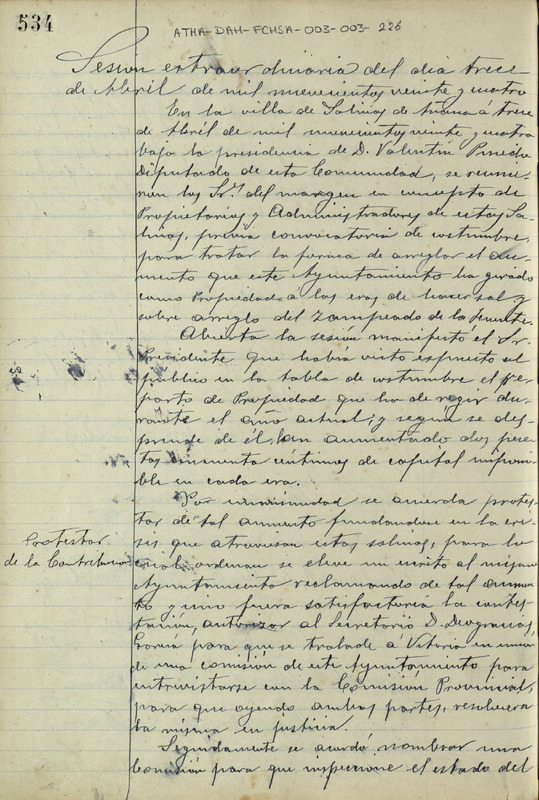 534
ATHA-DAH-FCHSA-003-003-226
Sesion extraordinaria del dia trece
de Abril de mil novecientos veinte y cuatro
En la villa de Salinas de Anana á trece
de Abril de mil novecientos veinte y cuatro
bajo la presidencia de D. Valentin Pinedo
Diputado de esta Comunidad, se reunie-
ron los Srs. del margen en concepto de
Propietarios y Administradores de estas Sa-
linas, previa convocatoria de costumbre,
para tratar la forma de arreglar el au-
mento que este Ayuntamiento ha girado
como Propiedad a las eras de hacer sal y
sobre arreglo del Zampeado de la fuente.
Abierta la sesión manifestó el Sr.
Presidente que habia visto espuesto al
publico en la tabla de costumbre el re-
parto de Propiedad que ha de regir du-
rante el año actual; y según se des-
prende de él, han aumentado dos pese-
tas cincuenta céntimos de capital imponi-
ble en cada era.
Por unanimidad se acuerda protes-
tar de tal aumento fundandose en la cri-
sis que atraviesan estas salinas, para lo
cual ordenan se eleve un escrito al mismo
Ayuntamiento reclamando de tal aumen-
to y sino fuera satisfactoria la contes-
tación, autorizar al Secretario D. Deogracias
García para que se traslade á Vitoria en union
de una comisión de este Ayuntamiento para
entrevistarse con la Comisión Provincial,
para que oyendo ambas partes, resolviera
la misma en justicia.
Protestar
de la Contribucion
Seguidamente se acordó nombrar una
Comisión para que inspeccione el estado del